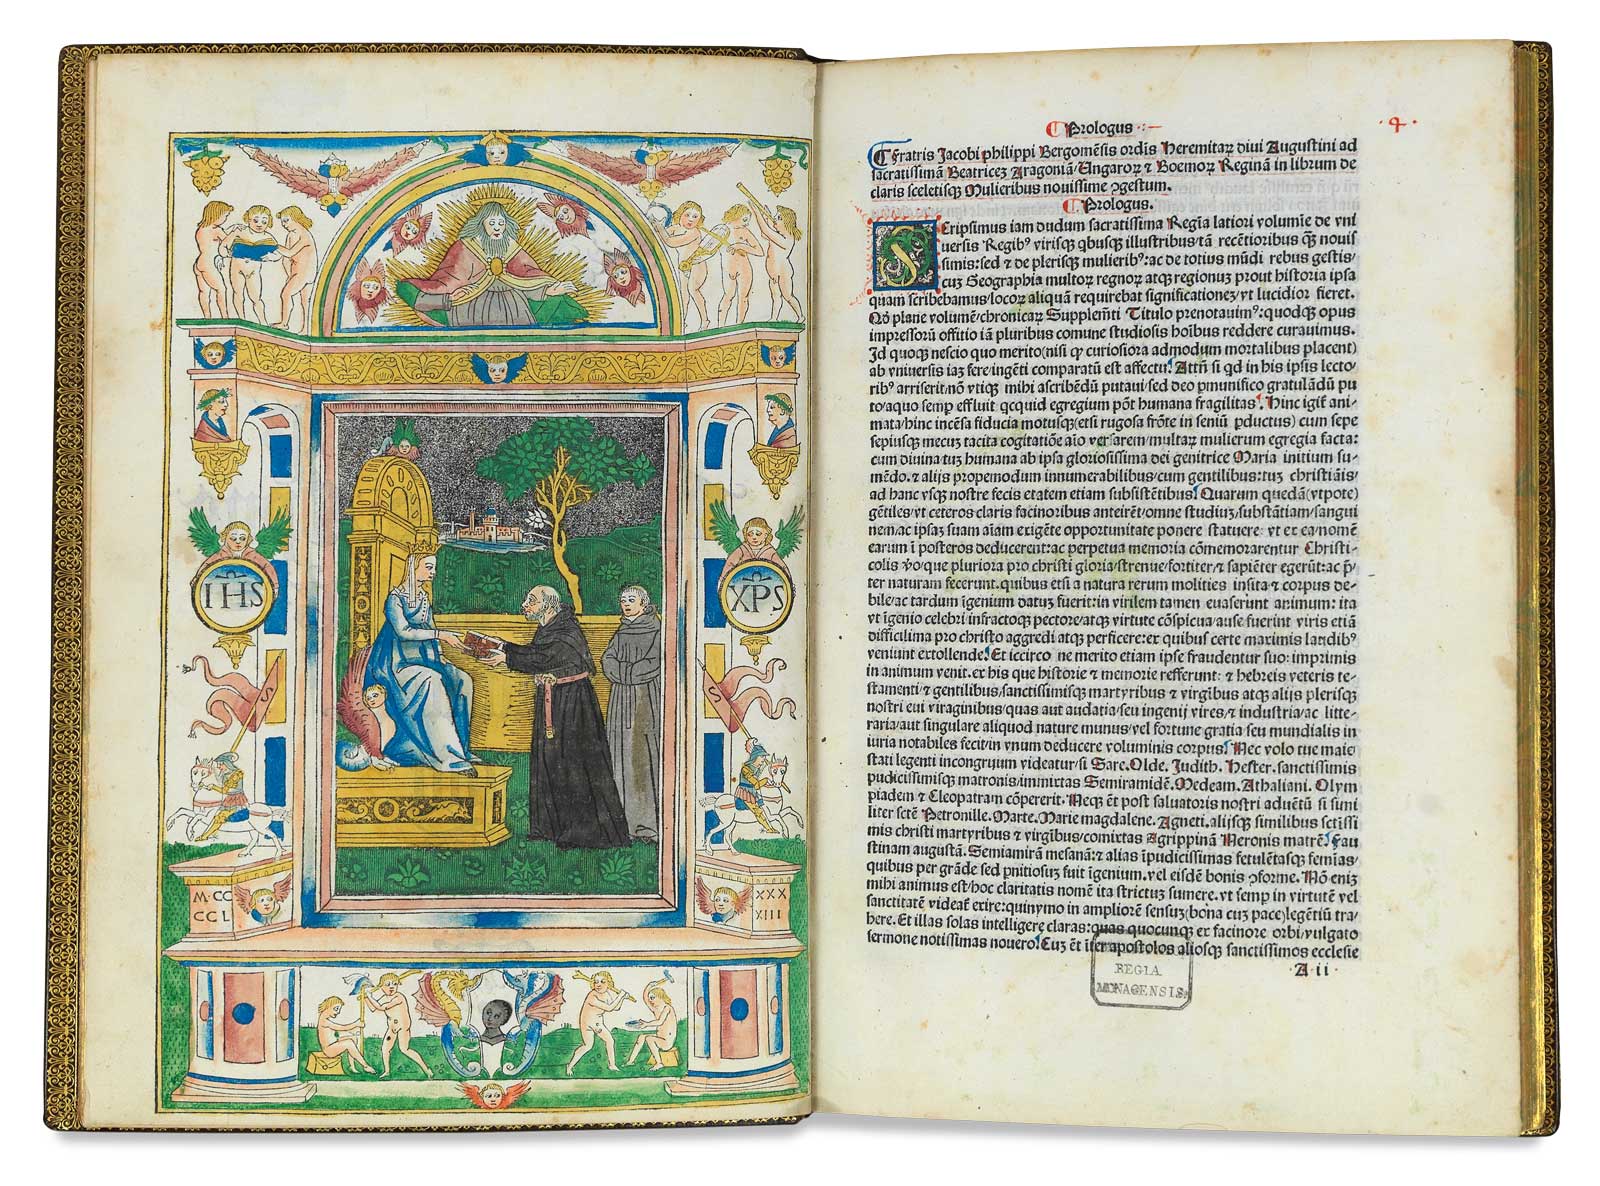 IHS
XPS
S
S
M·CC
CCL
XXX
XIII
Prologus
4
Fratris Jacobi philippi Bergomēsis ordis Heremitaꝝ diui Augustini ad
sacratissimā Beatriceȝ Aragoniā Ungaroꝝ ⁊ Boemoꝝ Reginā in librum de
claris sceletisqȝ Mulieribus nouissime ꝯgestum.
Prologus.
Scripsimus iam dudum sacratissima Regīa latiori volumīe de vni
uersis Regibꝰ virisqȝ qbusqȝ illustribus/tā recētioribus qȝ nouis
simis:sed ⁊ de plerisqȝ mulieribꝰ:ac de totius mūdi rebus gestis/
cuȝ Geographia multoꝝ regnoꝝ atqȝ regionuȝ prout historia ipsa
quam scribebamus/locoꝝ aliquā requirebat significationeȝ/vt lucidior fieret.
Qd plane volumē/chronicaꝝ Supplemēti Titulo prenotauimꝰ:quodqȝ opus
impressorū offitio iā pluribus comune studiosis hoībus reddere curauimus.
Id quoqȝ nescio quo merito(nisi qꝛ curiosiora admodum mortalibus placent)
ab vniuersis iaȝ fere/ingēti comparatū est affectu. Attn̄ si qd in his ipsis lecto/
ribꝰ arriserit/nō vtiqȝ mihi ascribēdū putaui/sed deo ꝑmunifico gratulādū pu
to/a quo semꝑ effluit qcquid egregium pōt humana fragilitas. Hinc igit̄ ani/
mata/hinc incēsa fiducia motusqȝ(etsi rugosa frōte in seniū ꝑductus) cum sepe
sepiusqȝ mecuȝ tacita cogitatiōe aīo versarem/multaꝝ mulierum egregia facta:
cum diuina tuȝ humana ab ipsa gloriosissima dei genitrice Maria initium su/
mēdo. ⁊ alijs propemodum innumerabilibus/cum gentilibus:tuȝ christiāis/
ad hanc vsqȝ nostre fecis etatem etiam subsistētibus. Quarum quedā(vtpote)
gētiles/vt ceteros claris facinoribus anteirēt/omne studiuȝ/substātiam/sangui
nem/ac ipsaȝ suam aīam exigēte opportunitate ponere statuere vt ex ea/nomē
earum ī posteros deducerent:ac perpetua memoria cōmemorarentur Christi/
colis vō/que pluriora pro christi gloria/strenue/fortiter/⁊ sapiēter egerūt:ac p̄
ter naturam fecerunt. quibus etsi a natura rerum molities insita ⁊ corpus de/
bile/ac tardum īgenium datuȝ fuerit:in virilem tamen euaserunt animum: ita
vt īgenio celebri infractoqȝ pectore/atqȝ virtute cōspicua/ause fuerint viris etiā
difficilima pro christo aggredi atqȝ perficere:ex quibus certe maximis laudibꝰ
veniunt extollende. Et iccirco ne merito etiam ipse fraudentur suo: imprimis
in animum venit. ex his que historie ⁊ memorie refferunt: ⁊ hebreis veteris te/
stamenti ⁊ gentilibus/sanctissimisqȝ martyribus ⁊ virgibus atqȝ alijs plerisqȝ
nostri eui viraginibus/quas aut audatia/seu ingenij vires/⁊ industria/ac litte/
raria/aut singulare aliquod nature munus/vel fortune gratia seu mundialis in
iuria notabiles fecit/in vnum deducere voluminis corpus. Nec volo tue maie
stati legenti incongruum videatur/si Sare. Olde. Judith. Hester. sanctissimis
pudicissimisqȝ matronis/immixtas Semiramidē. Medeam. Athaliani. Olym
piadem ⁊ Cleopatram cōpererit. Necqȝ et post saluatoris nostri aduētū si simi
liter scтē Petronille. Marte. Marie magdalene. Agneti. alijsqȝ similibus sctīssi
mis christi martyribus ⁊ virgibus/comixtas Agrippinā Neronis matrē. Fau
stinam augustā. Semiamirā mesanā:⁊ alias īpudicissimas fetulētasqȝ femīas/
quibus per grāde sed ꝑnitiosuȝ fuit īgenium. vel eisdē bonis ꝯforme. Nō eniȝ
mihi animus est/hoc claritatis nomē ita strictuȝ sumere. vt semꝑ in virtutē vel
sanctitatē videat̄ exire:quinymo in ampliorē sensuȝ(bona cuȝ pace)legētiū tra/
here. Et illas solas intelligere claras:quas quocunqȝ ex facinore orbi/vulgato
sermone notissimas nouero. Cuȝ ēt īter apostolos aliosqȝ sanctissimos ecclesie
A ii
REGIA
MONACENSIS.